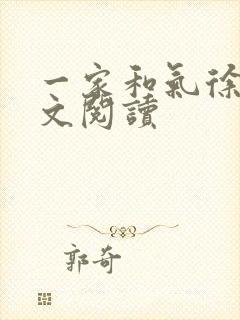 一家和氣徐
文閱讀
郭奇